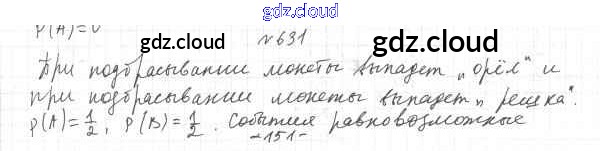 gdz.cloud
P(A)=0
№631
gdz.cloud gdz.cloud
При подбрасывании монеты выпадет „орёл“ и
при подбрасывании монеты выпадет „решка“.
P(A)=1/2, P(B)=1/2. События равновозможные
-151-
gdz.cloud gdz.cloud